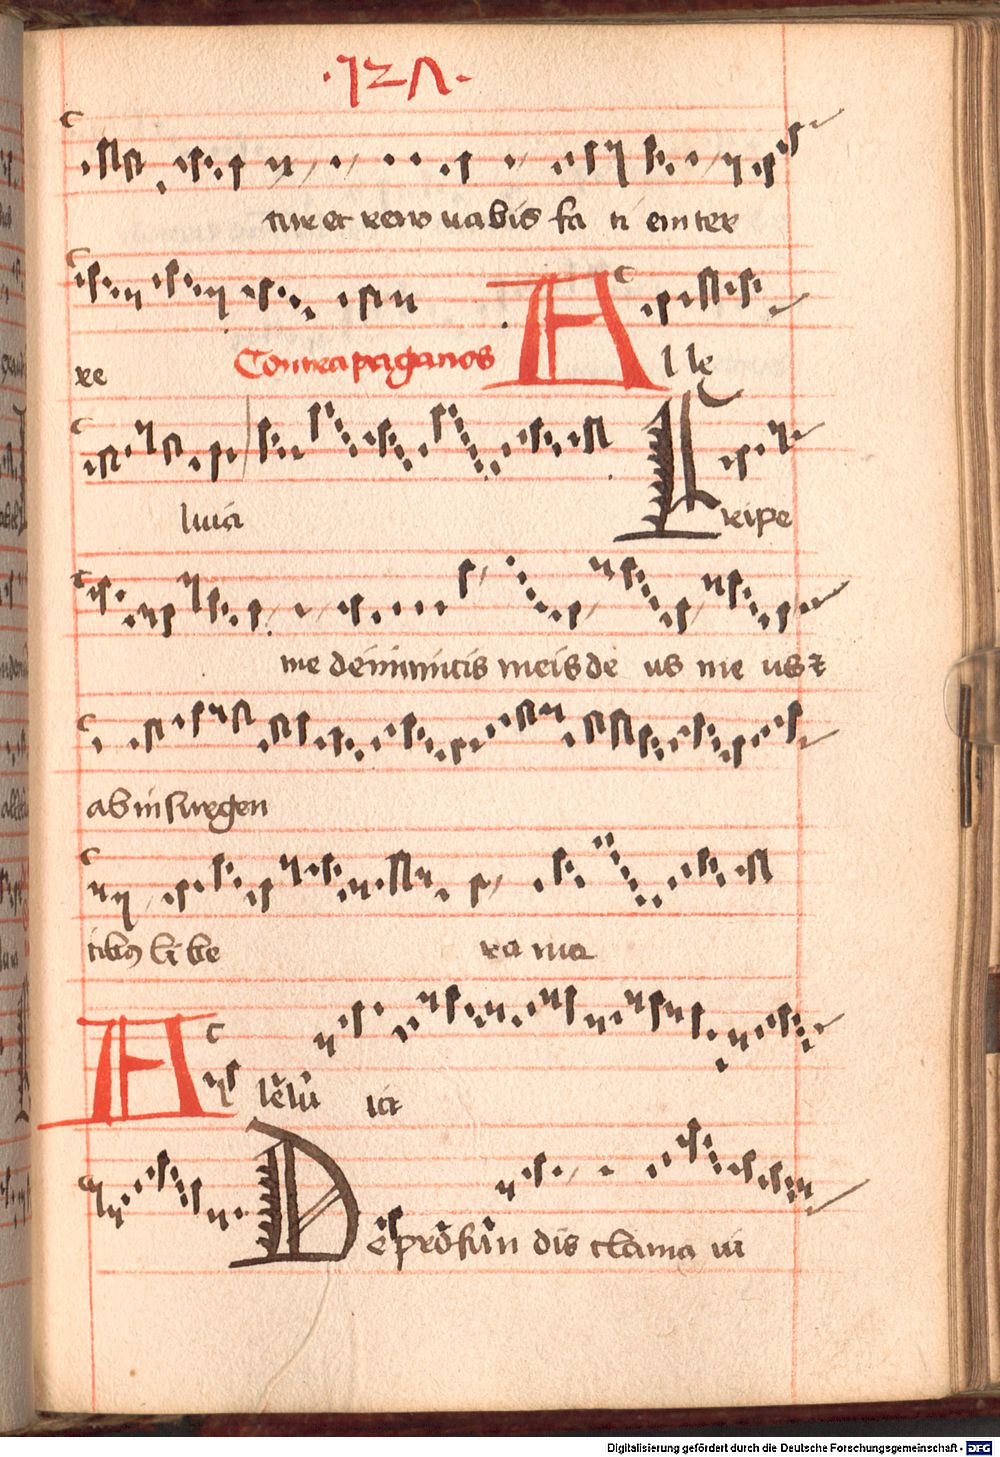 ·127·
tur et reno vabis fa ci em ter
re Contra paganos A lle
luia Eripe
me de inimicis meis de us me us ⁊
ab insurgen
tibꝯ li be ra me
A lelu ia
De profun dis clama ui
Digitalisierung gefördert durch die Deutsche Forschungsgemeinschaft - DFG